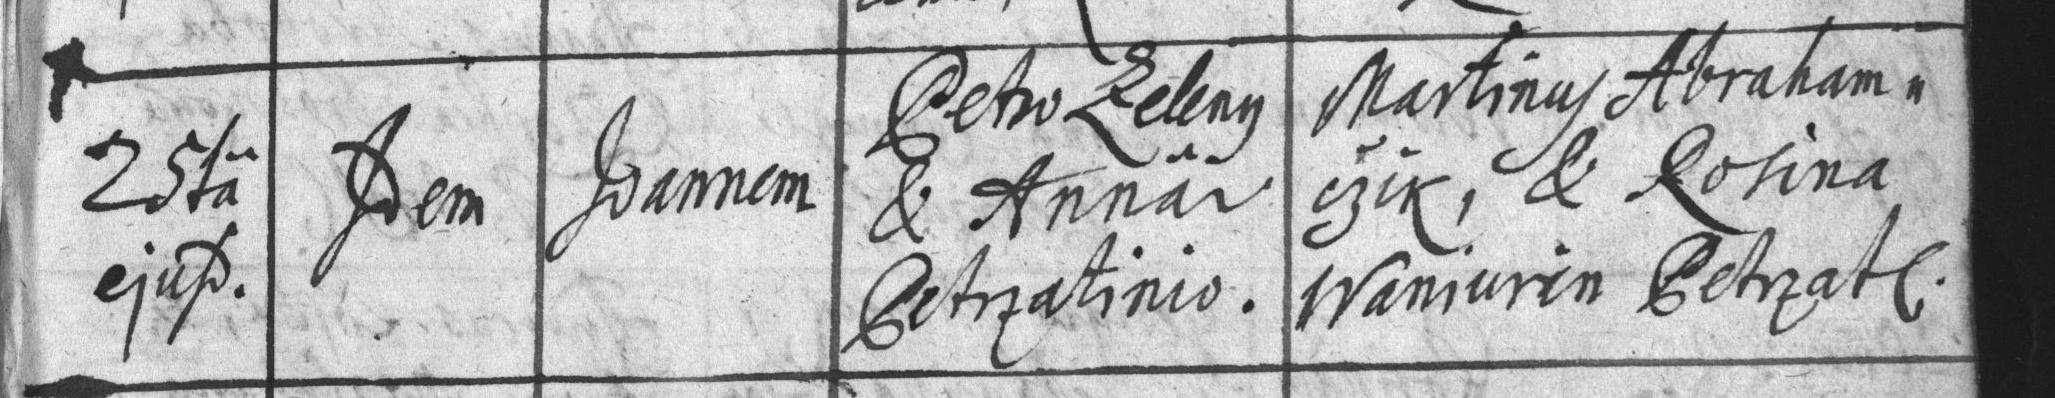 25tä
ejusd.
Idem
Joannem
Petro Zeleny
& Annä
Petrzatinio.
Martinus Abraham„
czik, & Rosina
Waniurin Petrzat